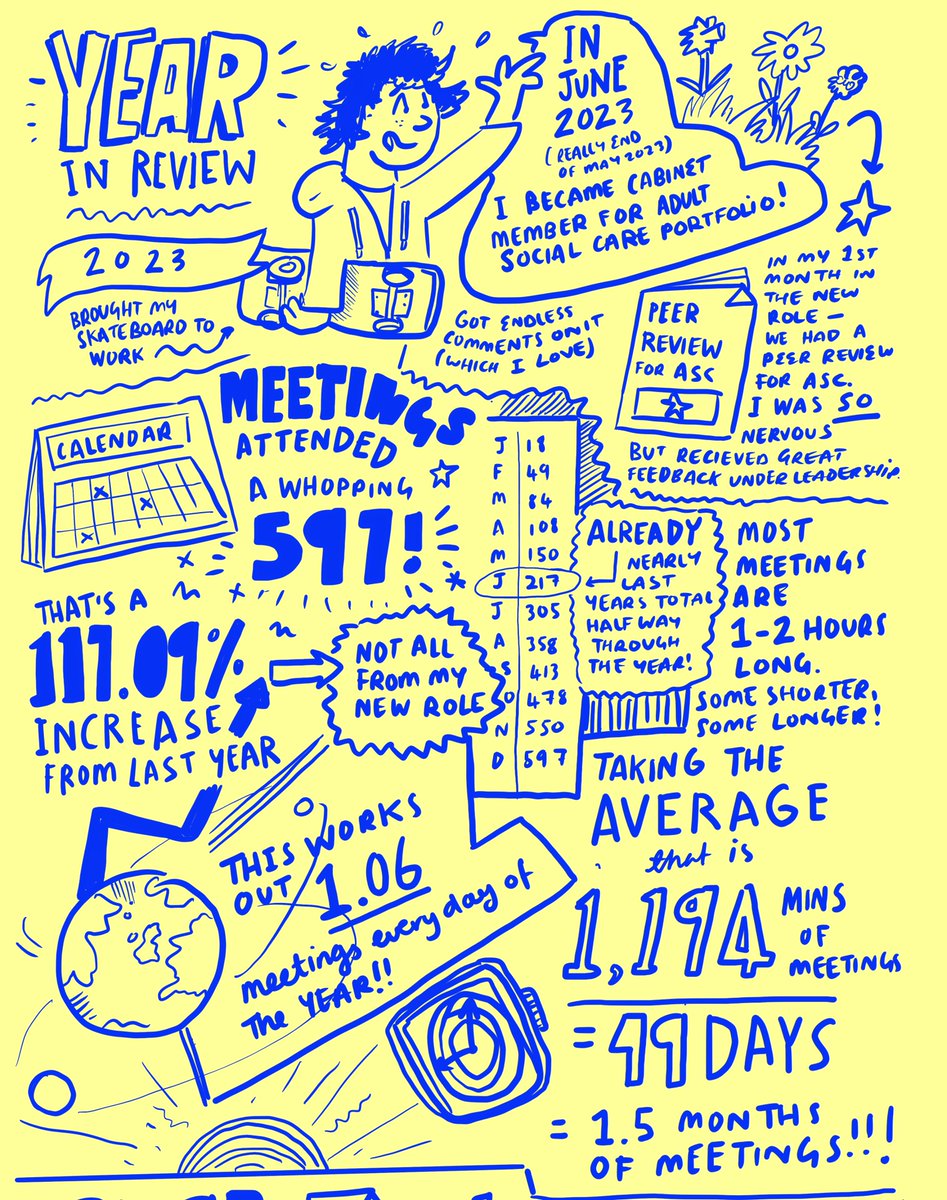 YEAR
IN REVIEW
2023
BROUGHT MY
SKATEBOARD TO
WORK
IN
JUNE
2023
(REALLY END
OF MAY 2023)
I BECAME CABINET
MEMBER FOR ADULT
SOCIAL CARE PORTFOLIO!
GOT ENDLESS
COMMENTS ON IT
(WHICH I LOVE)
PEER
REVIEW
FOR ASC
IN MY 1ST
MONTH IN
THE NEW
ROLE –
WE HAD A
PEER REVIEW
FOR ASC.
I WAS SO
NERVOUS
BUT RECIEVED GREAT
FEEDBACK UNDER LEADERSHIP.
CALENDAR
MEETINGS
ATTENDED
A WHOPPING
597!
THAT'S A
117.09%
INCREASE
FROM LAST YEAR
NOT ALL
FROM MY
NEW ROLE
J 18
F 49
M 84
A 108
M 150
J 217
J 305
A 358
S 413
O 478
N 550
D 597
ALREADY
NEARLY
LAST
YEARS TOTAL
HALF WAY
THROUGH
THE YEAR!
MOST
MEETINGS
ARE
1-2 HOURS
LONG.
SOME SHORTER,
SOME LONGER!
THIS WORKS
OUT 1.06
meetings every day of
The YEAR!!
TAKING THE
AVERAGE
that is
1,194 MINS
OF
MEETINGS
= 49 DAYS
= 1.5 MONTHS
OF MEETINGS!!!